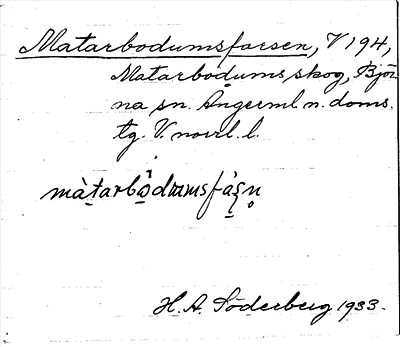 Matarbodumsforsen, V 194,
Matarbodums skog, Björ-
na sn. Ångerml. n. doms.
tg. V. norrl. l.
H. A. Söderberg 1933.